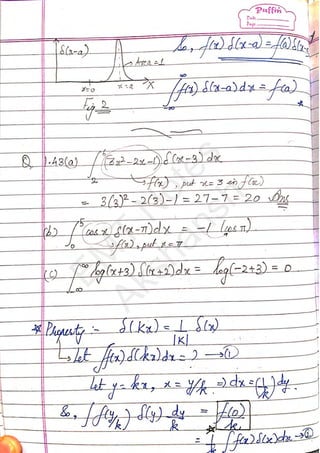 Puffin
Date
Page
δ(x-a)
Area=1
x=0
x=a
X
Fig. 2
So, f(x) δ(x-a) = f(a) δ(x-
∫_{-∞}^{∞} f(x) δ(x-a) dx = f(a)
Q 1.43(a) ∫_2^6 (3x²-2x-1) δ(x-3) dx
→ f(x), put x=3 in f(x)
= 3(3)²-2(3)-1 = 27-7 = 20 Ans
(b) ∫_0^5 cos x δ(x-π) dx = -1 (cos π).
→ f(x), put x=π.
(c) ∫_{-∞}^{∞} log(x+3) δ(x+2) dx = log(-2+3) = 0.
* Property :- δ(kx) = 1/|k| δ(x)
→ Let ∫f(x) δ(kx) dx = ? → ①
Let y = kx, x = y/k ⇒ dx = (1/k) dy.
So, ∫ f(y/k) δ(y) dy/k = f(0)/k
= 1/k ∫ f(x) δ(x) dx → ②